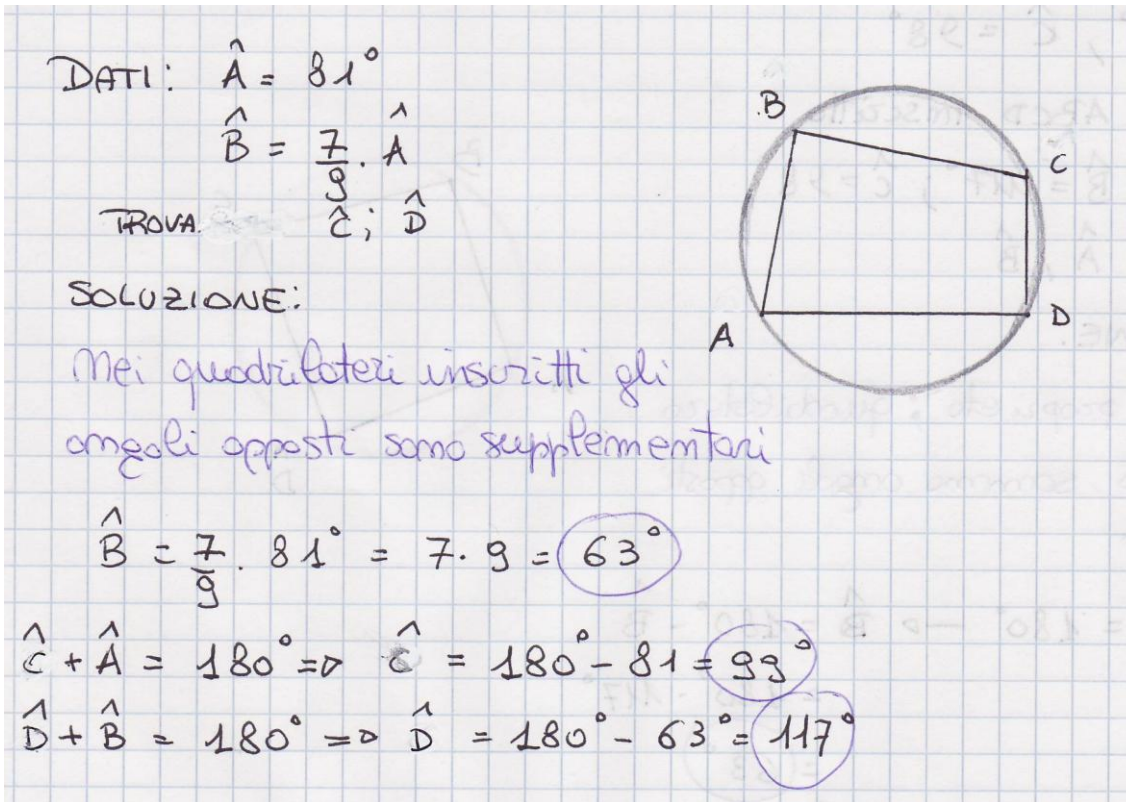 DATI: Â = 81°
B̂ = 7/9 · Â
TROVA Ĉ; D̂
B
C
A
D
SOLUZIONE:
Nei quadrilateri inscritti gli
angoli opposti sono supplementari
B̂ = 7/9 · 81° = 7 · 9 = 63°
Ĉ + Â = 180° => Ĉ = 180° - 81 = 99°
D̂ + B̂ = 180° => D̂ = 180° - 63° = 117°